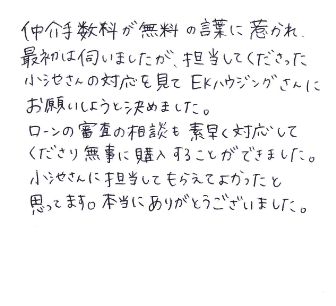 仲介手数料が無料の言葉に惹かれ、
最初は伺いましたが、担当してくださった
小池さんの対応を見てEKハウジングさんに
お願いしようと決めました。
ローンの審査の相談も素早く対応して
くださり無事に購入することができました。
小池さんに担当してもらえてよかったと
思ってます。本当にありがとうございました。